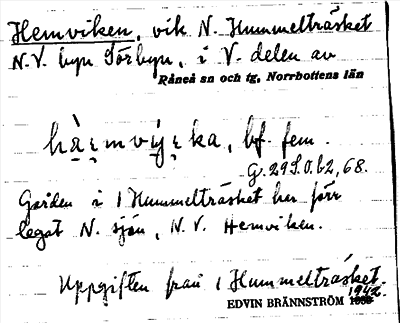 Hemviken, vik N. Hummelträsket
N.V. byn Sörbyn, i V. delen av
Råneå sn och tg, Norrbottens län
bf. fem.
G. 29 S.O. b2, 68.
Gården i 1 Hummelträsket har förr
legat N. sjön, N.V. Hemviken.
Uppgiften från 1 Hummelträsket.
EDVIN BRÄNNSTRÖM 1942.